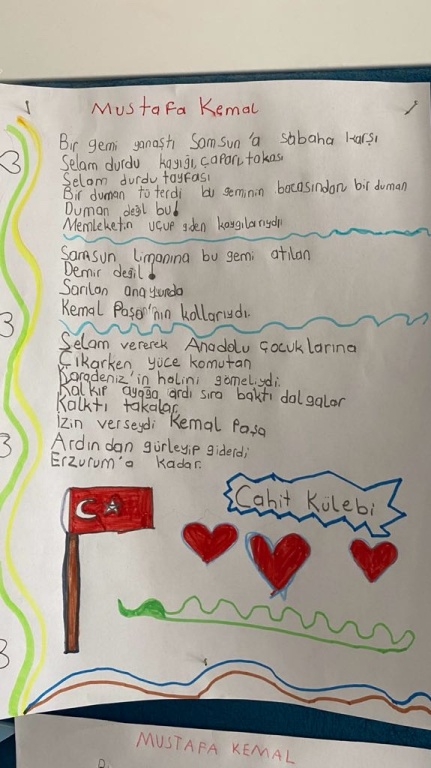 Mustafa Kemal
Bir gemi yanaştı Samsun'a sabaha karşı
Selam durdu kayığı, çaparı, takası
Selam durdu tayfası
Bir duman tüterdi bu geminin bacasından bir duman
Duman değil bu!
Memleketin uçup giden kaygılarıydı
Samsun limanına bu gemi atılan
Demir değil!
Sarılan anayurda
Kemal Paşa'nın kollarıydı.
Selam vererek Anadolu çocuklarına
Çıkarken yüce komutan
Karadeniz'in halini görmeliydi.
Kalkıp ayağa ardı sıra baktı dalgalar
Kalktı takalar,
İzin verseydi Kemal Paşa
Ardından gürleyip giderdi
Erzurum'a kadar.
Cahit Külebi
MUSTAFA KEMAL